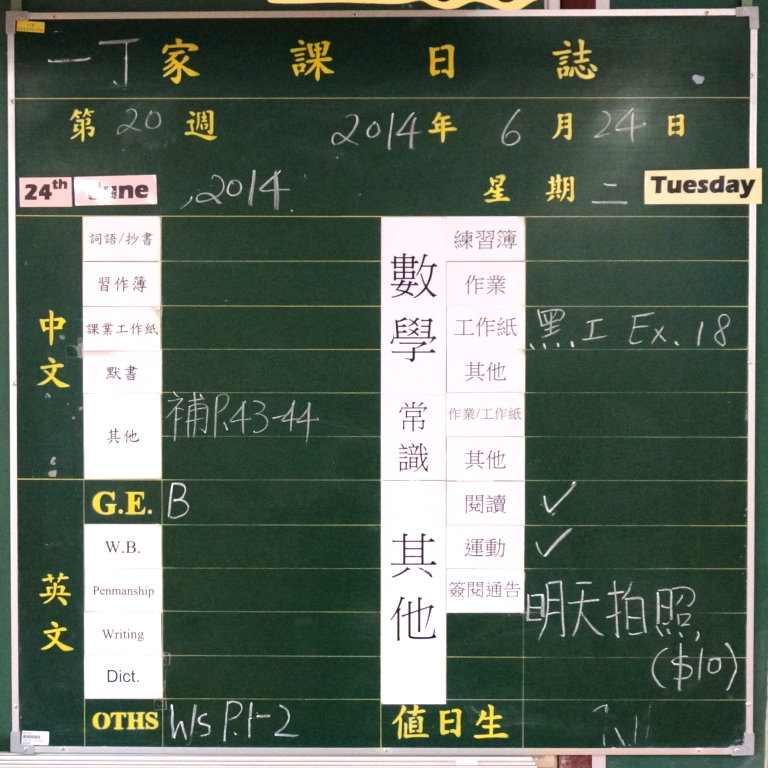 一丁家課日誌
第20週 2014年6月24日
24th June, 2014. 星期二 Tuesday
中文
詞語/抄書
習作簿
課業工作紙
默書
其他 補P.43-44
英文
G.E. B
W.B.
Penmanship
Writing
Dict.
OTHS W/s P.1-2
數學
練習簿
作業
工作紙 黑工 Ex. 18
其他
常識
作業/工作紙
其他
其他
閱讀 ✓
運動 ✓
簽閱通告 明天拍照
($10)
值日生